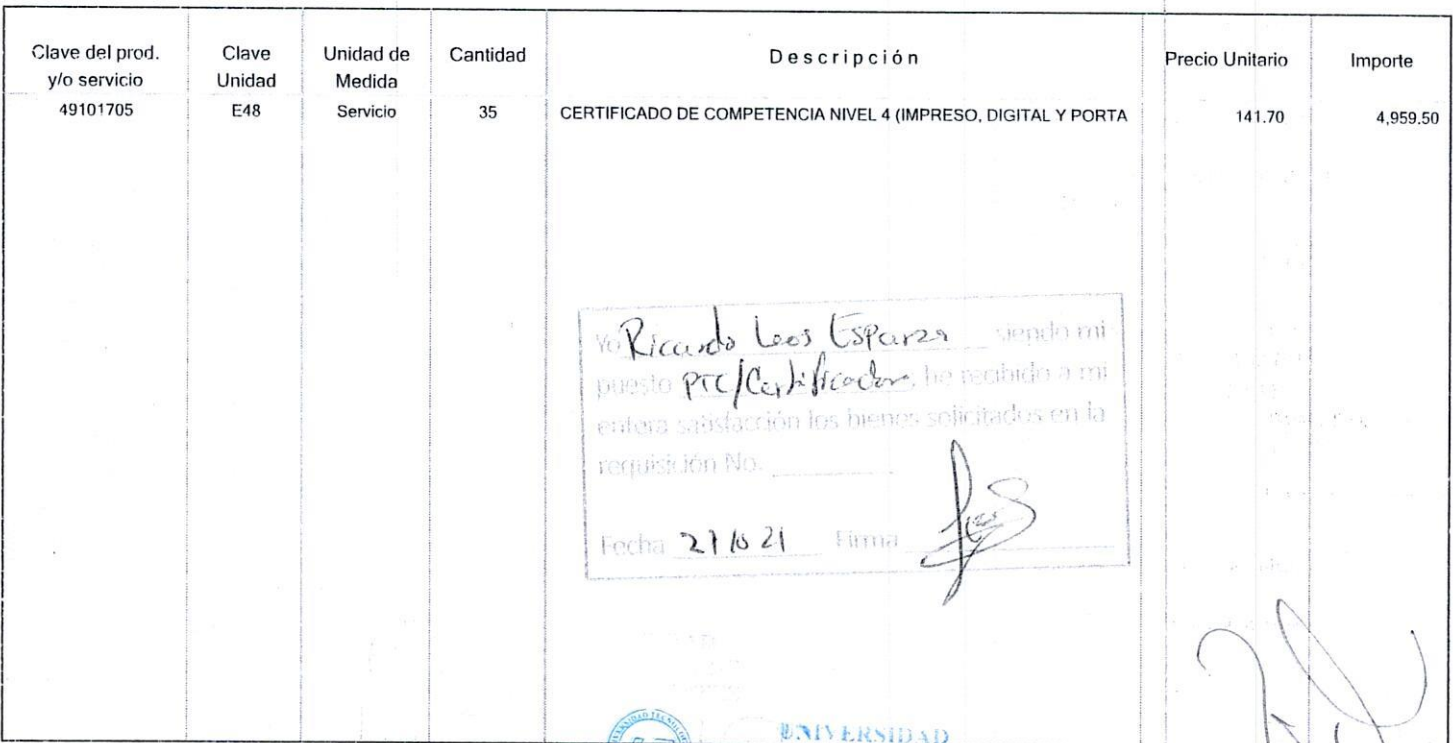 Clave del prod. y/o servicio Clave Unidad Unidad de Medida Cantidad Descripción Precio Unitario Importe
49101705 E48 Servicio 35 CERTIFICADO DE COMPETENCIA NIVEL 4 (IMPRESO, DIGITAL Y PORTA 141.70 4,959.50
Yo Ricardo Leos Esparza siendo mi
puesto PTC/Certificador, he recibido a mi
entera satisfacción los bienes solicitados en la
requisición No.
Fecha 27 10 21 Firma
UNIVERSIDAD